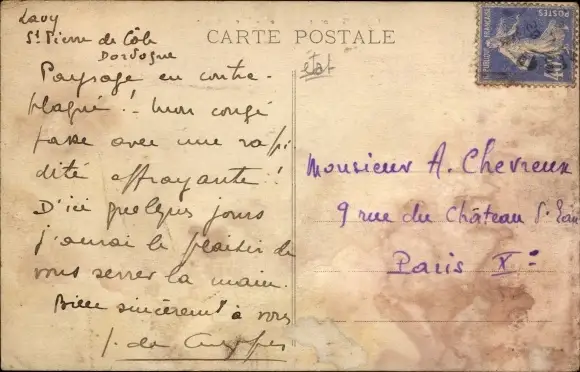 Lavy
St Pierre de Côle
Dordogne
CARTE POSTALE
état
Paysage en contre-
plaqué! Mon congé
passe avec une rapi
dité effrayante!
D'ici quelques jours
j'aurai le plaisir de
vous serrer la main.
Bien sincèrement à vous
J. de
REPUBLIQUE FRANÇAISE
POSTES
40c
Monsieur A. Chevreux
9 rue du Château d'Eau
Paris Xe